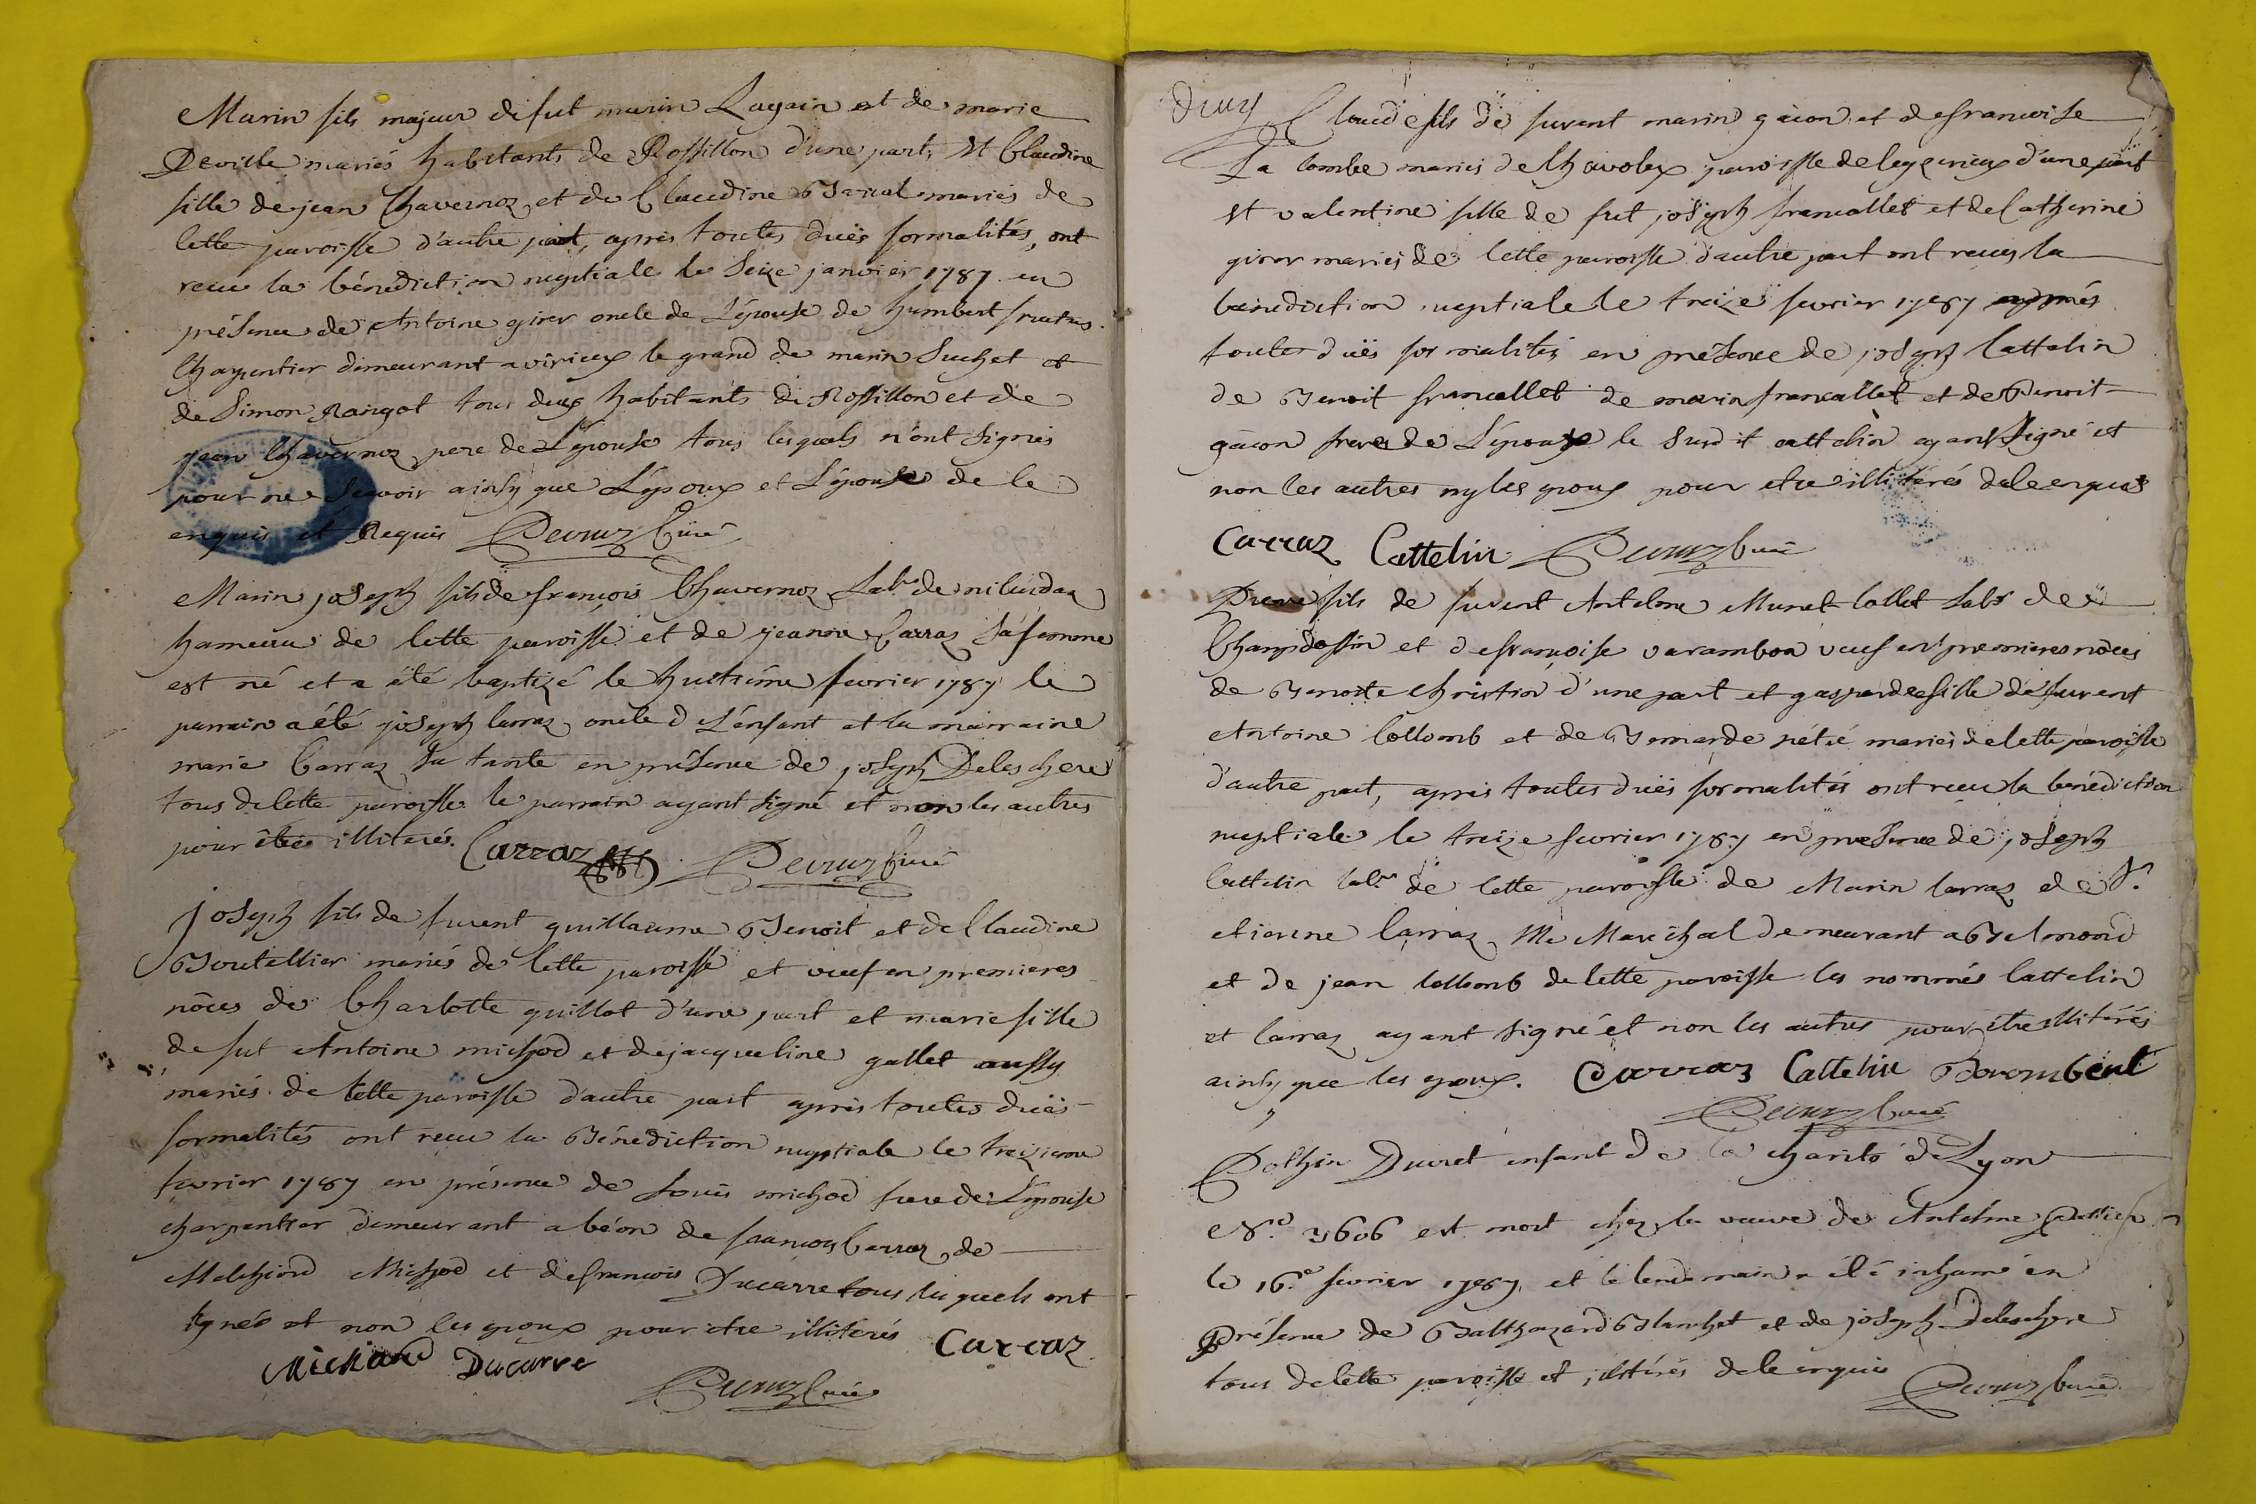 Marin fils majeur de fut marin Lagain et de marie
Deville mariés habitants de Rossillon d'une part, et Claudine
fille de jean Chavernoz et de Claudine mariés de
Cette paroisse d'autre part, apres toutes duës formalités, ont
recu la bénédiction nuptiale le Seize janvier 1787 en
présence de Antoine girer oncle de L'épouse de humbert
Charpentier demeurant a virieux le grand de marin Suchet et
de Simon tous deux habitants de Rossillon et de
jean Chavernoz pere de L'épouse tous lesquels n'ont signés
pour ne Scavoir ainsy que L'époux et L'épouse de ce
enquis et Requis Curé
Marin joseph fils de françois Chavernoz Labr de
hameau de Cette paroisse et de jeanne Carraz sa femme
est né et a été baptizé le huitième fevrier 1787 le
parrain a été joseph Carraz oncle de L'enfant et la marraine
marie Carraz Sa tante en présence de joseph Deleschere
tous de Cette paroisse le parrain ayant signé et non les autres
pour être illiterés. Carraz Curé
joseph fils de fuvent guillaume Benoit et de Claudine
Boutellier mariés de Cette paroisse et veuf en premieres
nôces de Charlotte guillot d'une part et marie fille
de fut Antoine michod et de jacqueline gallet aussy
mariés de Cette paroisse d'autre part apres toutes duës
formalités ont recu la Bénédiction nuptiale le treizieme
fevrier 1787 en présence de Louis michod frere de L'épouse
charpentier demeurant a béon de francois Carraz de
Melchiord Michod et de francois Ducarre tous lesquels ont
signés et non les epoux pour etre illiterés Carraz
Michaud Ducarre
Curé
Claude fils de fuvent marin gacon et de francoise
La Combe mariés de Chavolex paroisse de Ceyzerieux d'une part
et valentine fille de fut joseph francallet et de Catherine
girer mariés de Cette paroisse d'autre part ont recus la
bénédiction nuptiale le treize fevrier 1787 apprés
toutes duës formalités en présence de joseph Cattelin
de Benoit francallet de marin francallet et de Benoit
gacon freres de L'époux le Susdit cattelin ayant Signé et
non les autres ny les epoux pour etre illitérés de ce enquis
Carraz Cattelin Curé
Pierre fils de fuvent Antelme Munet Collet Labr de
Champdossin et de françoise varambon veuf en premieres nôces
de Benoite Christin d'une part et gasparde fille de fuvent
Antoine Collomb et de Bernarde mariés de Cette paroisse
d'autre part, apres toutes duës formalités ont recu la bénédiction
nuptiale le treize fevrier 1787 en presence de joseph
Cattelin labr de Cette paroisse de Marin Carraz et de Sr
etienne Carraz Me Maréchal demeurant a Belmond
et de jean Collomb de Cette paroisse les nommés Cattelin
et Carraz ayant signé et non les autres pour être illitérés
ainsy que les epoux. Carraz Cattelin
Curé
Pothin Duvret enfant de la charité de Lyon
No. est mort chez la veuve de Antelme
le 16e fevrier 1787 et le lendemain a été inhumé en
Présence de Balthazard Blanchet et de joseph Deleschere
tous de Cette paroisse et illitérés de ce enquis Curé